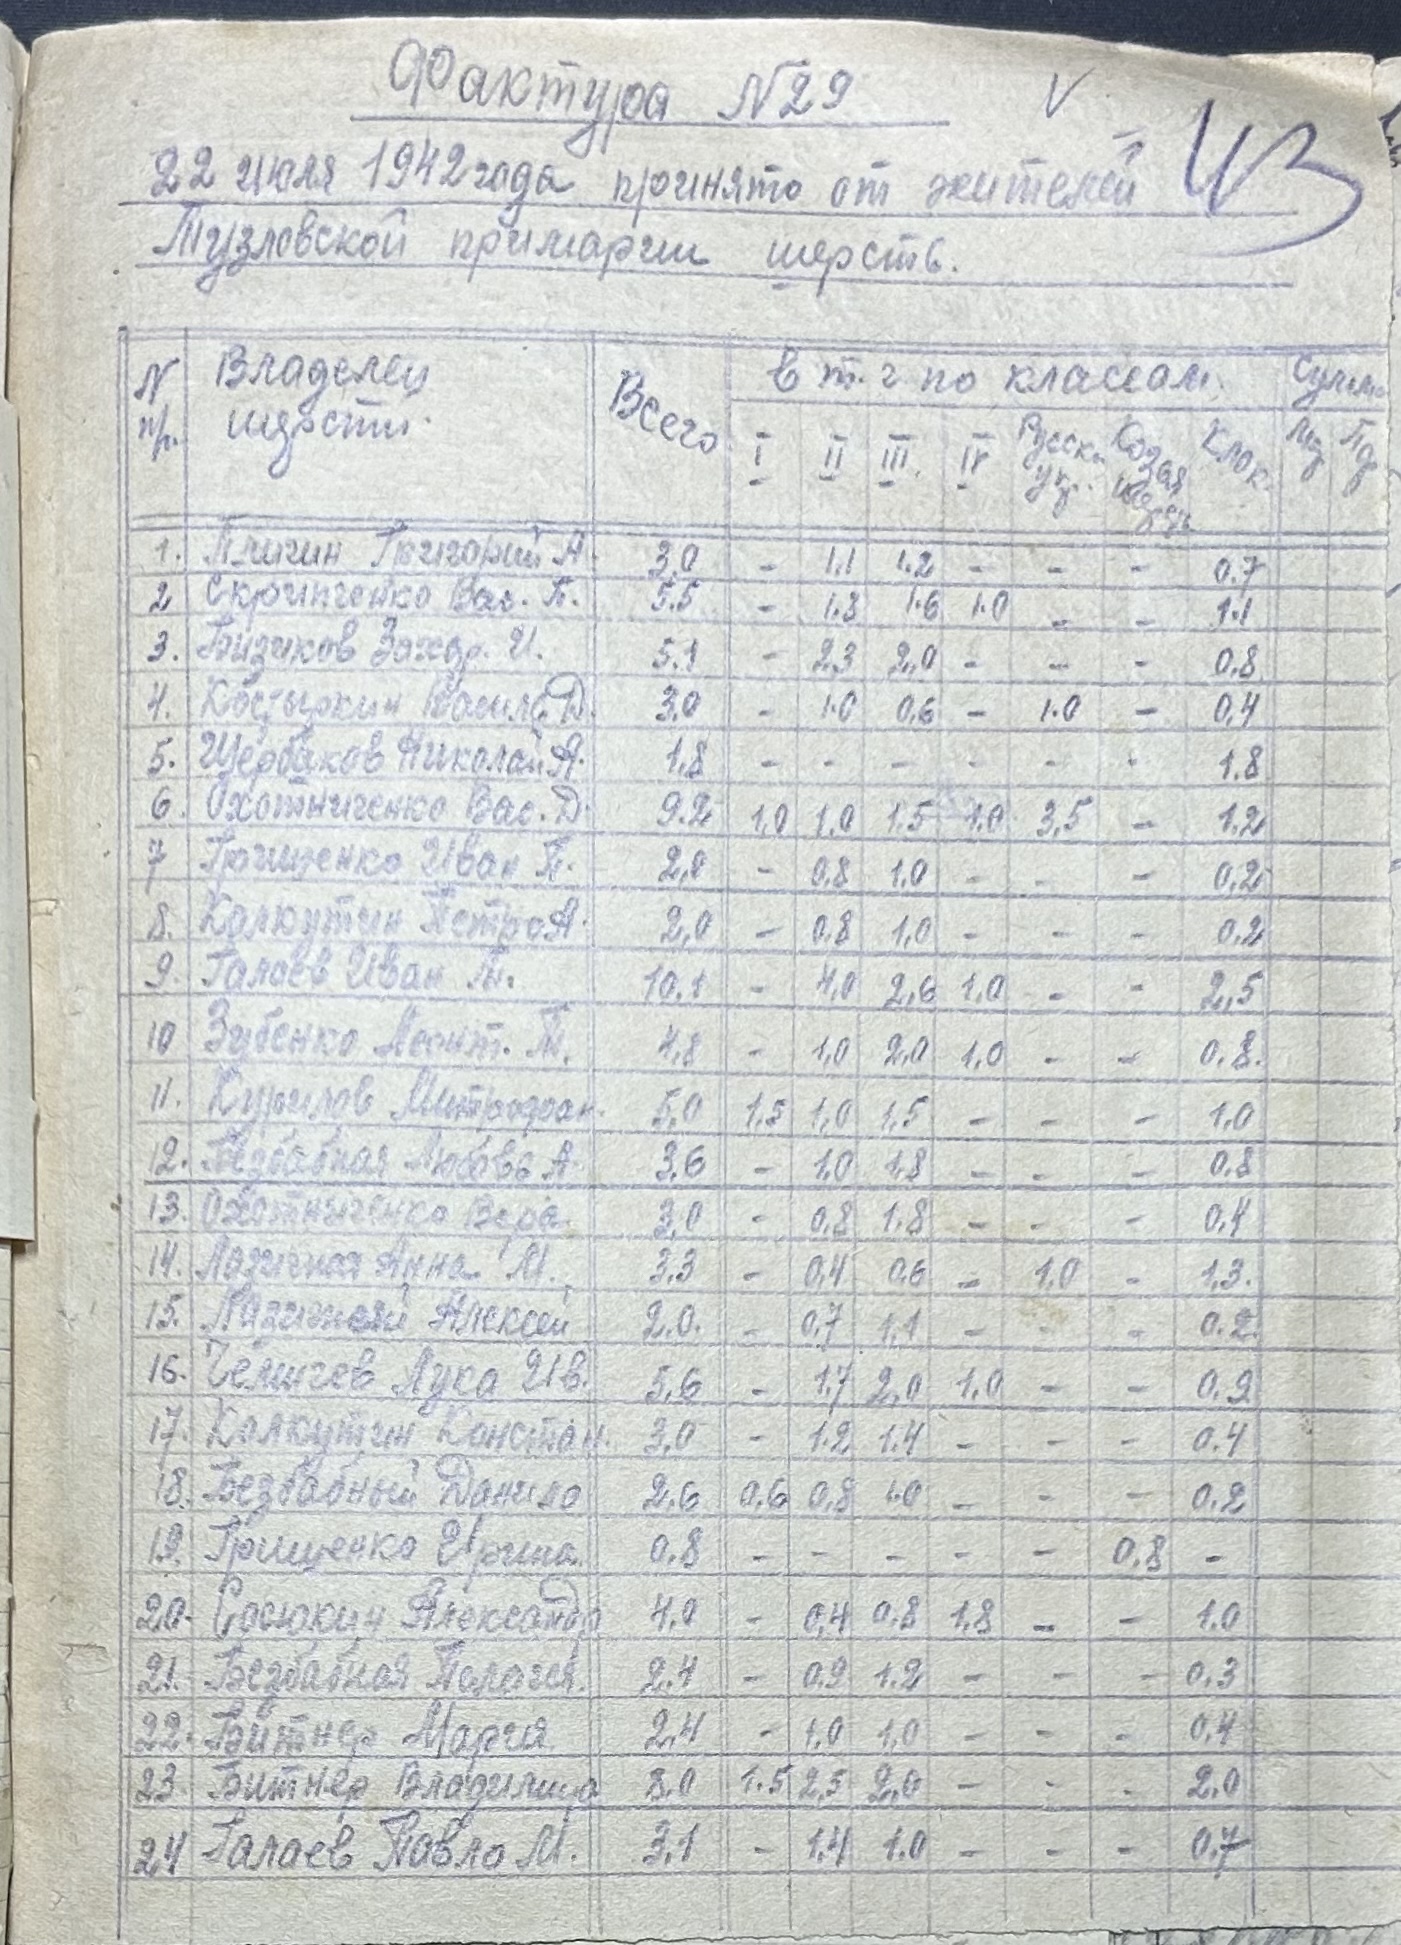 Фактура N29
22 июля 1942 года принято от жителей
Тузловской примарии шерсть.
N пр. Владелец шерсти. Всего в т. ч по классам. Сумма
I II III. IV Русск. Козья Клок.
1. Григорий А. 3,0 - 1.1 1.2 - - - 0.7
2 Скрипченко Вас. П. 5.5 - 1.8 1.6 1.0 - - 1.1
3. Бизиков Захар. И. 5.1 - 2.3 2,0 - - - 0.8
4. Костыркин Васил. Д. 3,0 - 1.0 0.6 - 1.0 - 0,4
5. Щербаков Николай А. 1,8 - - - - - - 1.8
6. Охотниченко Вас. Д. 9.2 1.0 1,0 1.5 1.0 3,5 - 1.2
7 Грищенко Иван П. 2,0 - 0.8 1.0 - - - 0,2
8. Калкутин Петро А. 2,0 - 0.8 1,0 - - - 0.2
9. Галаев Иван 10.1 - 4,0 2,6 1,0 - - 2,5
10 Зубенко Леонт. 4,8 - 1,0 2,0 1,0 - - 0.8.
11. Курилов Митрофан. 5,0 1,5 1,0 1,5 - - - 1,0
12. Безбабная Любовь А. 3,6 - 1,0 1,8 - - - 0,8
13. Охотниченко Вера. 3,0 - 0,8 1,8 - - - 0,4
14. Лазичная Анна М. 3,3 - 0,4 0.6 - 1.0 - 1,3.
15. Алексей 2.0. - 0,7 1,1 - - - 0.2
16. Челичев Лука Ив. 5,6 - 1.7 2,0 1,0 - - 0.9
17. Калкутин Констан. 3,0 - 1.2 1.4 - - - 0.4
18. Безбабный Данило 2.6 0,6 0,8 1.0 - - - 0.2
19. Грищенко Ирина. 0,8 - - - - - 0,8 -
20. Сосюкин Александр 4,0 - 0,4 0,8 1,8 - - 1.0
21. Безбабная Палагея. 2.4 - 0,9 1.2 - - - 0.3
22. Битнер Мария 2,4 - 1.0 1,0 - - - 0,4
23. Битнер 8.0 1.5 2,5 2,0 - - - 2,0
24 Галаев Павло М. 3,1 - 1.4 1.0 - - - 0.7